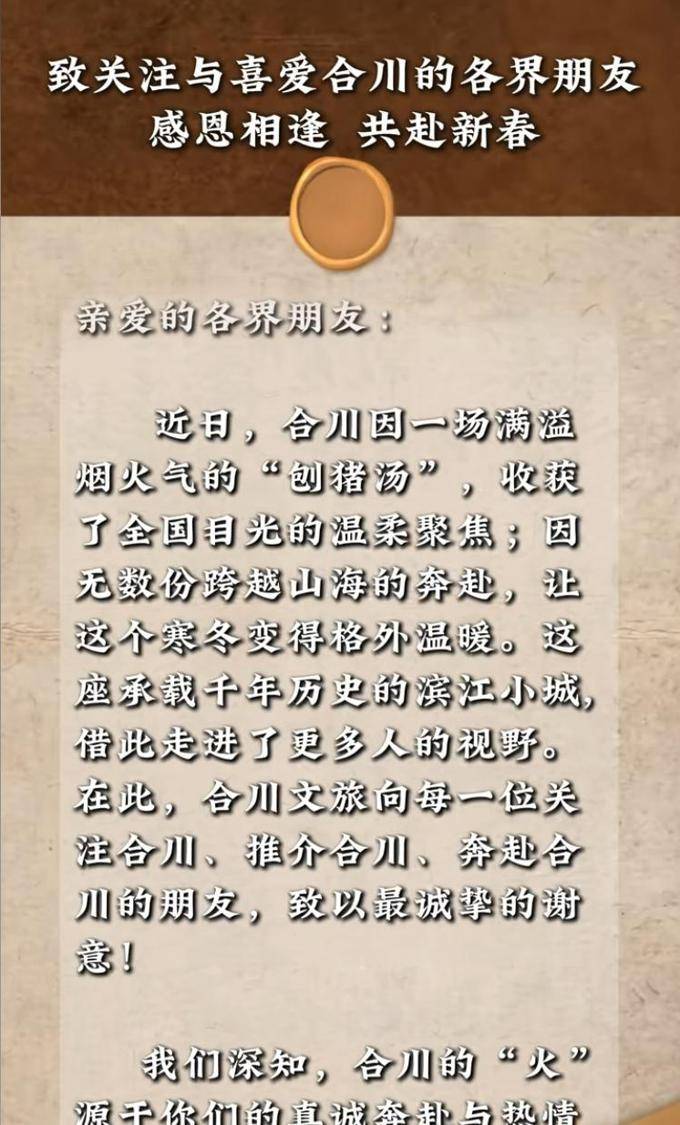 致关注与喜爱合川的各界朋友
感恩相逢 共赴新春
亲爱的各界朋友：
近日，合川因一场满溢
烟火气的“刨猪汤”，收获
了全国目光的温柔聚焦；因
无数份跨越山海的奔赴，让
这个寒冬变得格外温暖。这
座承载千年历史的滨江小城，
借此走进了更多人的视野。
在此，合川文旅向每一位关
注合川、推介合川、奔赴合
川的朋友，致以最诚挚的谢
意！
我们深知，合川的“火”
源于你们的真诚奔赴与热情